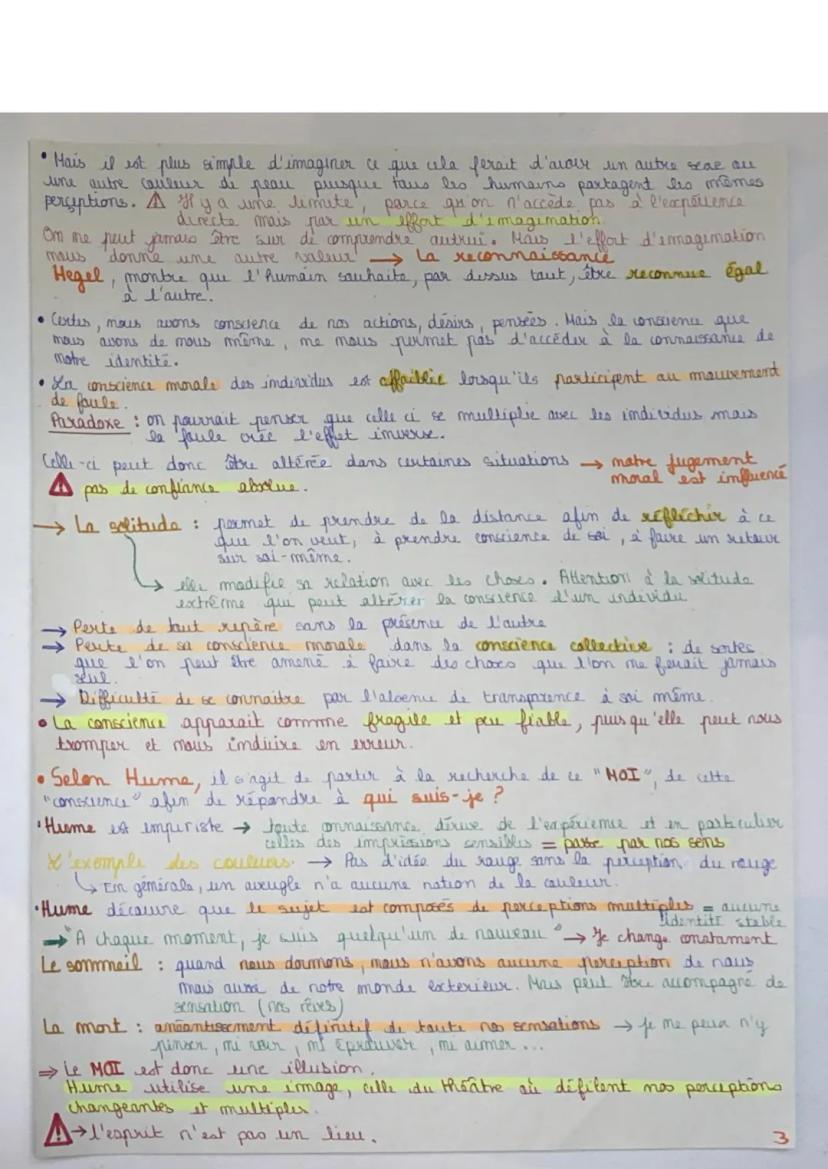 • Mais il est plus simple d'imaginer ce que cela ferait d'avoir un autre sexe ou
une autre couleur de peau puisque tous les humains partagent les mêmes
perceptions. ⚠ Il y a une limite, parce qu'on n'accède pas à l'expérience
directe mais par un effort d'imagination.
On ne peut jamais être sur de comprendre autrui. Mais l'effort d'imagination
nous donne une autre valeur → La reconnaissance
Hegel, montre que l'humain souhaite, par dessus tout, être reconnue égal
à l'autre.
• Certes, nous avons conscience de nos actions, désirs, pensées. Mais la conscience que
nous avons de nous même, ne nous permet pas d'accéder à la connaissance de
notre identité.
• La conscience morale des individus est affaiblie lorsqu'ils participent au mouvement
de foule.
Paradoxe : on pourrait penser que celle ci se multiplie avec les individus mais
la foule crée l'effet inverse.
Celle-ci peut donc être altérée dans certaines situations → notre jugement
moral est influencé
⚠ pas de confiance absolue.
→ La solitude : permet de prendre de la distance afin de réfléchir à ce
que l'on veut, à prendre conscience de soi, à faire un retour
sur soi-même.
↳ elle modifie sa relation avec les choses. Attention à la solitude
extrême qui peut altérer la conscience d'un individu
→ Perte de tout repère sans la présence de l'autre
→ Perte de sa conscience morale dans la conscience collective : de sortes
que l'on peut être amené à faire des choses que l'on ne ferait jamais
seul.
→ Difficulté de se connaitre par l'absence de transparence à soi même.
• La conscience apparait comme fragile et peu fiable, puisqu'elle peut nous
tromper et nous induire en erreur.
• Selon Hume, il s'agit de partir à la recherche de ce "MOI", de cette
"conscience" afin de répondre à qui suis-je ?
• Hume est empiriste → toute connaissance dérive de l'expérience et en particulier
celles des impressions sensibles = passe par nos sens
L'exemple des couleurs. → Pas d'idée du rouge sans la perception du rouge
↳ En générale, un aveugle n'a aucune notion de la couleur.
• Hume découvre que le sujet est composés de perceptions multiples = aucune
identité stable
→ "A chaque moment, je suis quelqu'un de nouveau" → Je change constament
Le sommeil : quand nous dormons, nous n'avons aucune perception de nous
mais aussi de notre monde exterieur. Mais peut être accompagné de
sensation (nos rêves)
La mort : anéantissement définitif de toute nos sensations → je ne peux n'y
penser, ni voir, ni éprouver, ni aimer ...
⇒ Le MOI est donc une illusion.
Hume utilise une image, celle du théâtre où défilent nos perceptions
changeantes et multiples.
⚠ → l'esprit n'est pas un lieu.
3